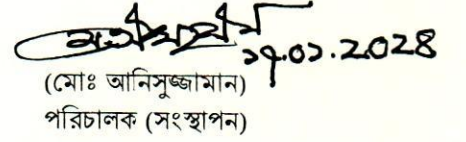 ১৭.০১.২০২৪
(মোঃ আনিসুজ্জামান)
পরিচালক (সংস্থাপন)